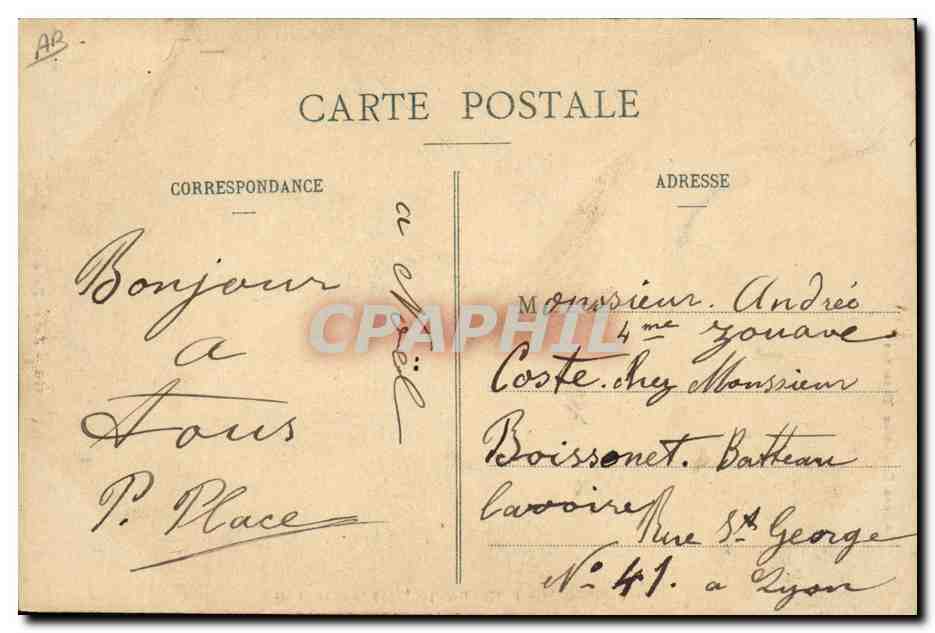 AB
CARTE POSTALE
CORRESPONDANCE
Bonjour
a
tous
P. Place
a Noël
ADRESSE
Monsieur. André
4me zouave
Coste. chez Monssieur
Boissonet. Batteau
lavoire Rue St George
No 41. a Lyon
CPAPHIL